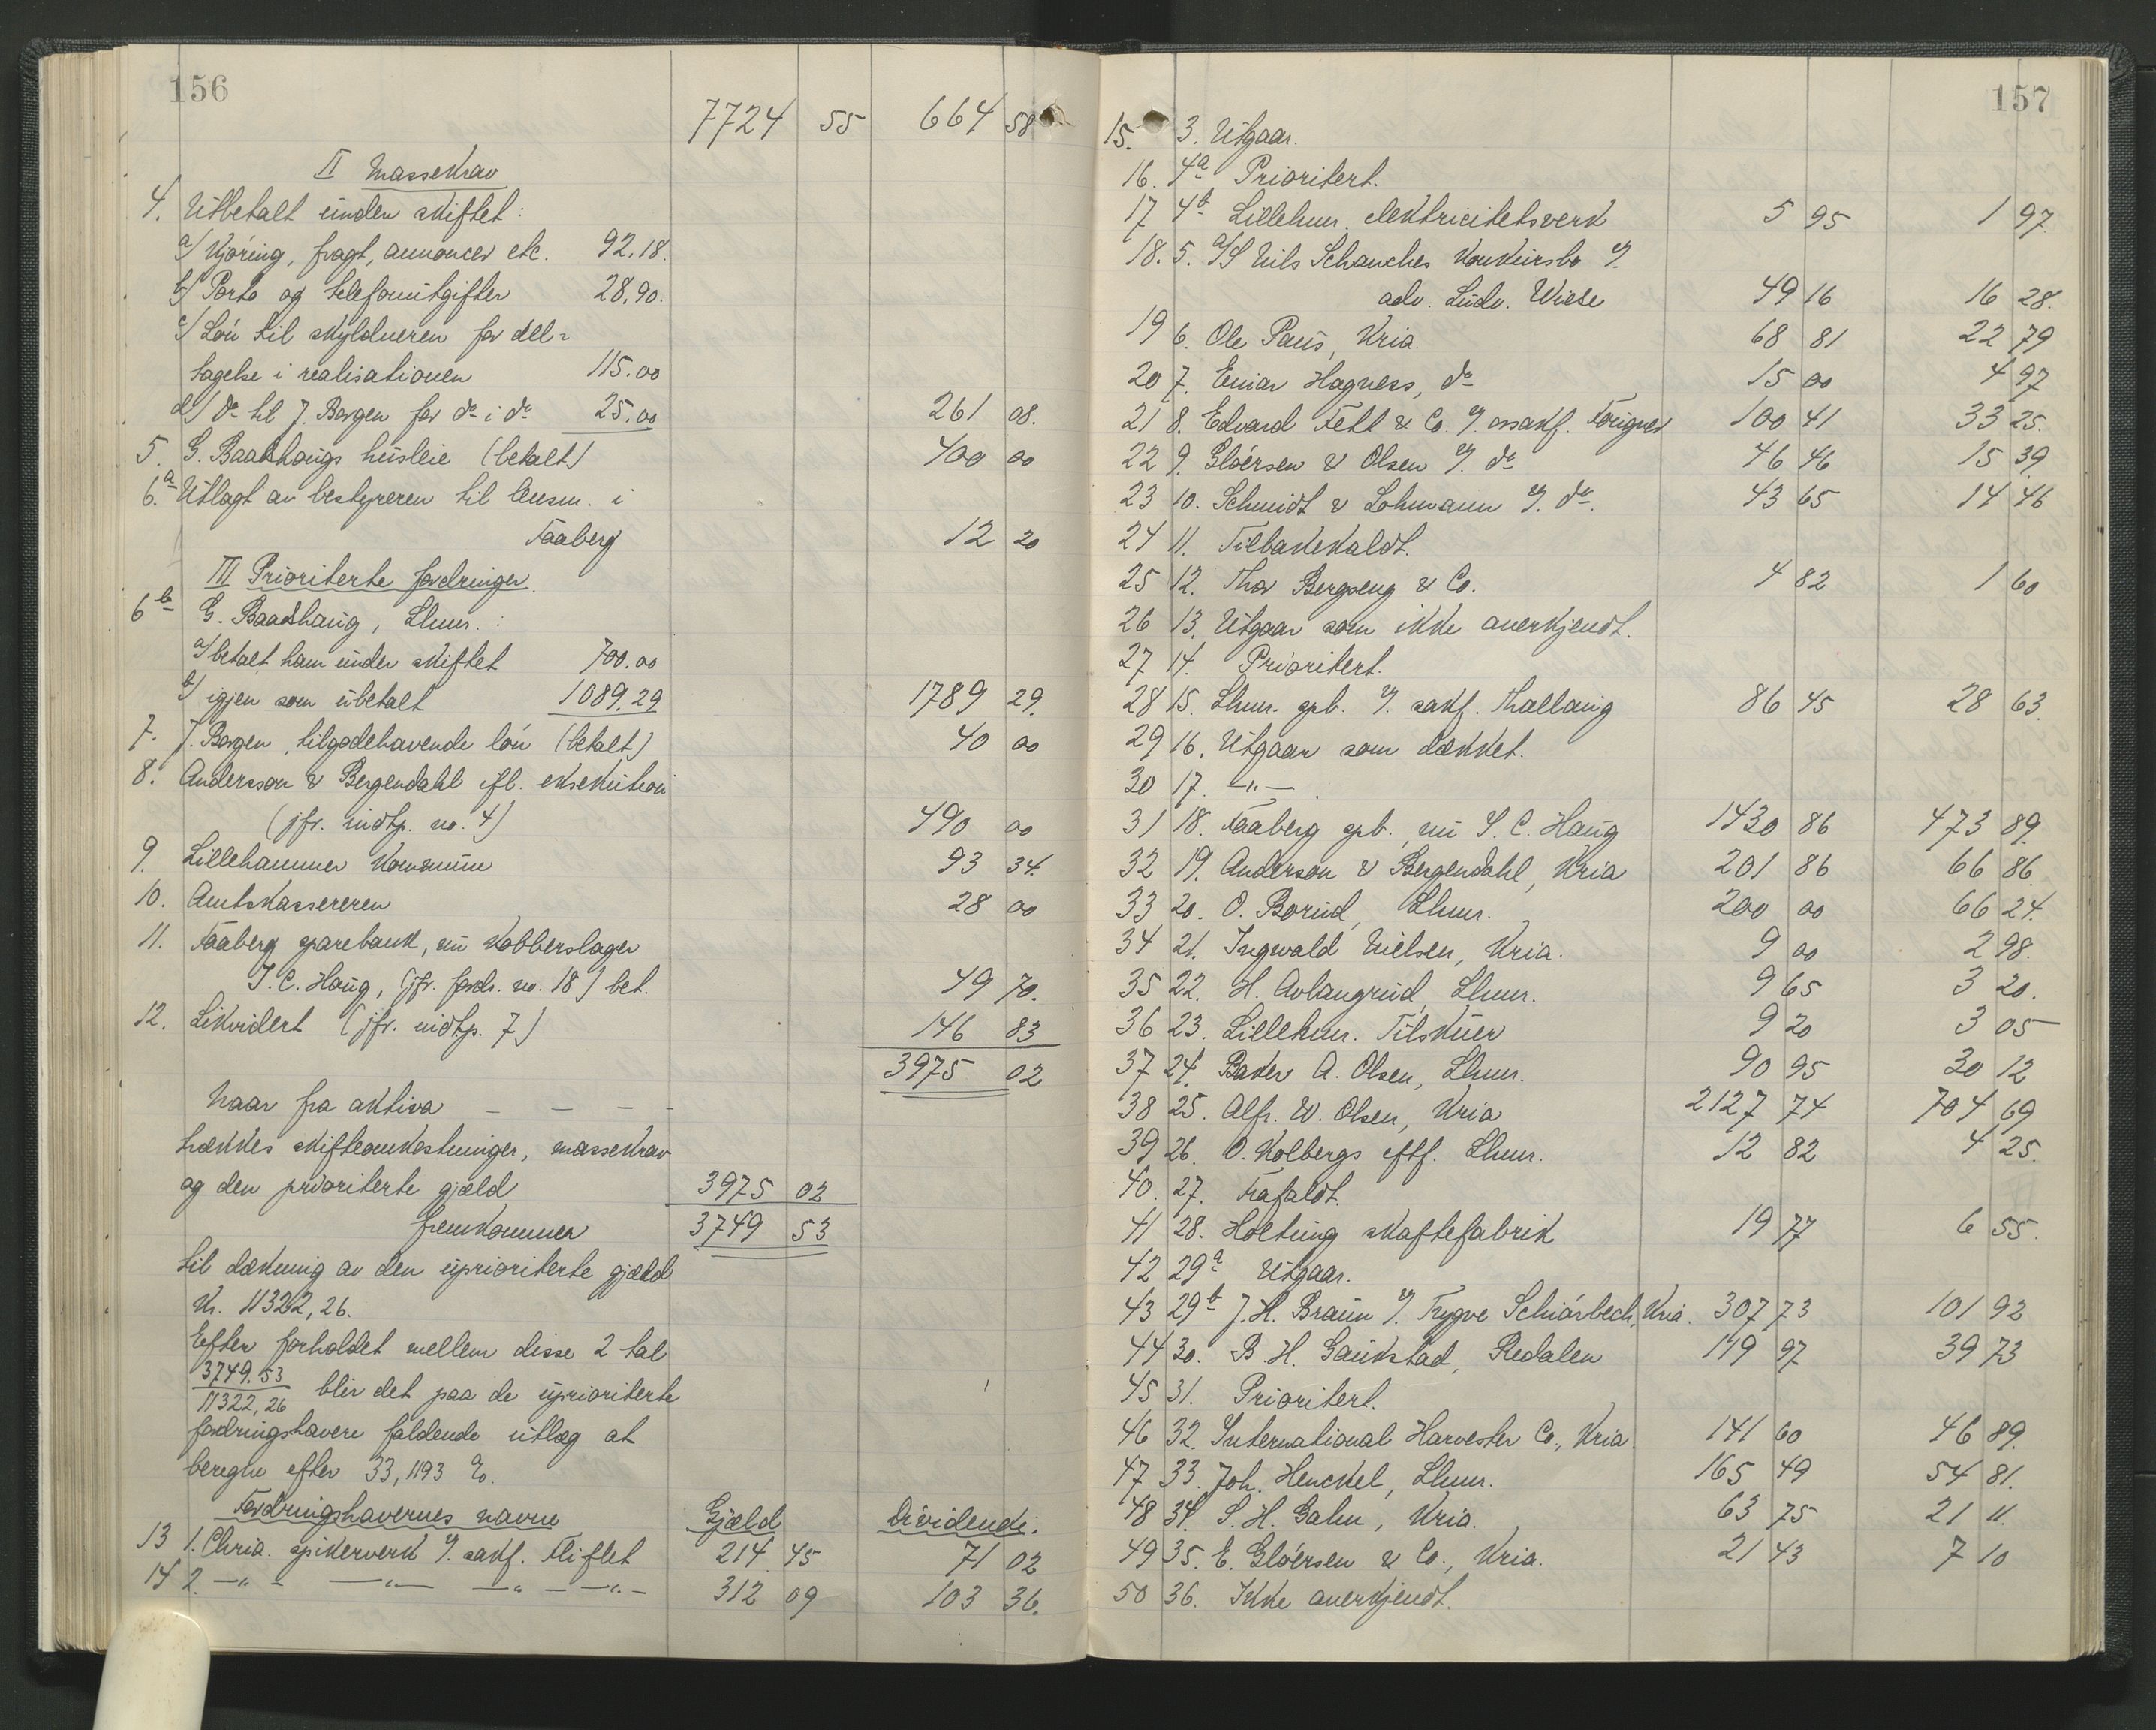 156
7724 55 664 58
II Massekrav
4. Utbetalt under skiftet:
a/ Kjöring, fragt, annoncer etc. 92.18.
b/ Porto og telefonutgifter 28.90.
c/ Lön til skyldneren for del-
tagelse i realisationen 115.00
d/ do til J. Borgen for do i do 25.00 261 08.
5. G. Baadshaugs husleie (betalt) 400 00
6.a Utlagt av bestyreren til lensm. i
Faaberg 12 20
III Prioriterte fordringer.
6b G. Baadshaug, Lhmr. :
a/ betalt ham under skiftet 700.00
b/ igjen som ubetalt 1089.29 1789 29.
7. J. Borgen, tilgodehavende lön (betalt) 40 00
8. Andersson & Bergendahl ifl. eksekution
(jfr. indtp. no. 4) 490 00
9. Lillehammer Kommune 93 34.
10. Amtskassereren 28 00
11. Faaberg sparebank, nu Kobberslager
S. C. Haug, (jfr. fordr. no. 18) bet. 49 70.
12. Likvidert (jfr. indtp. 7) 146 83
3975 02
Naar fra aktiva — — — -
trækkes skifteomkostninger, massekrav
og den prioriterte gjæld 3975 02
fremkommer 3749 53
til dækning av den uprioriterte gjæld
Kr. 11322,26.
Efter forholdet mellem disse 2 tal
3749.53
11322,26 blir det paa de uprioriterte
fordringshavere faldende utlæg at
beregne efter 33,1193 %.
Fordringshavernes navne Gjæld Dividende.
13 1. Chria. spikerverk v/. sakf. Fliflet 214 45 71 02
14 2. —"— —"— —"— —"— 312 09 103 36.
157
15. 3. Utgaar.
16. 4a Prioritert.
17 4b Lillehmr. elektricitetsverk 5 95 1 97.
18. 5. A/S Nils Schanches Konkursbo v/.
adv. Ludv. Wiese 49 16 16 28.
19 6. Ole Paus, Kria. 68 81 22 79
20 7. Einar Hagness, do 15 00 4 97
21 8. Edvard Fett & Co. v/. o.r.sakf. Fougner 100 41 33 25.
22 9. Glöersen & Olsen v/. do 46 46 15 39.
23 10. Schmidt & Lohmann v/. do. 43 65 14 46
24 11. Tilbakekaldt.
25 12. Thor Bergseng & Co. 4 82 1 60
26 13. Utgaar som ikke anerkjendt.
27 14. Prioritert.
28 15. Lhmr. spb. v/. sakf. Thallaug 86 45 28 63.
29 16. Utgaar som dækket.
30 17. —"— .
31 18. Faaberg spb., nu S. C. Haug 1430 86 473 89.
32 19. Anderson & Bergendahl, Kria 201 86 66 86.
33 20. O. Borud, Lhmr. 200 00 66 24.
34 21. Ingvald Nielsen, Kria. 9 00 2 98.
35 22. H. Avlangrud, Lhmr. 9 65 3 20.
36 23. Lillehmr. Tilskuer 9 20 3 05
37 24. Baker A. Olsen, Lhmr. 90 95 30 12
38 25. Alfr. W. Olsen, Kria 2127 74 704 69
39 26. O. Kolbergs eftf. Lhmr. 12 82 4 25.
40. 27. Frafaldt.
41 28. Holtung skaftefabrik 19 77 6 55.
42 29a Utgaar.
43 29b J. H. Braun v/. Trygve Schiörbech, Kria. 307 73 101 92
44 30. B. H. Gaukstad, Redalen 119 97 39 73
45 31. Prioritert.
46 32. International Harvester Co., Kria. 141 60 46 89.
47 33. Joh. Henckel, Lhmr. 165 49 54 81.
48 34. S. H. Gahn, Kria. 63 75 21 11.
49 35. E. Glöersen & Co., Kria. 21 43 7 10
50 36. Ikke anerkjendt.